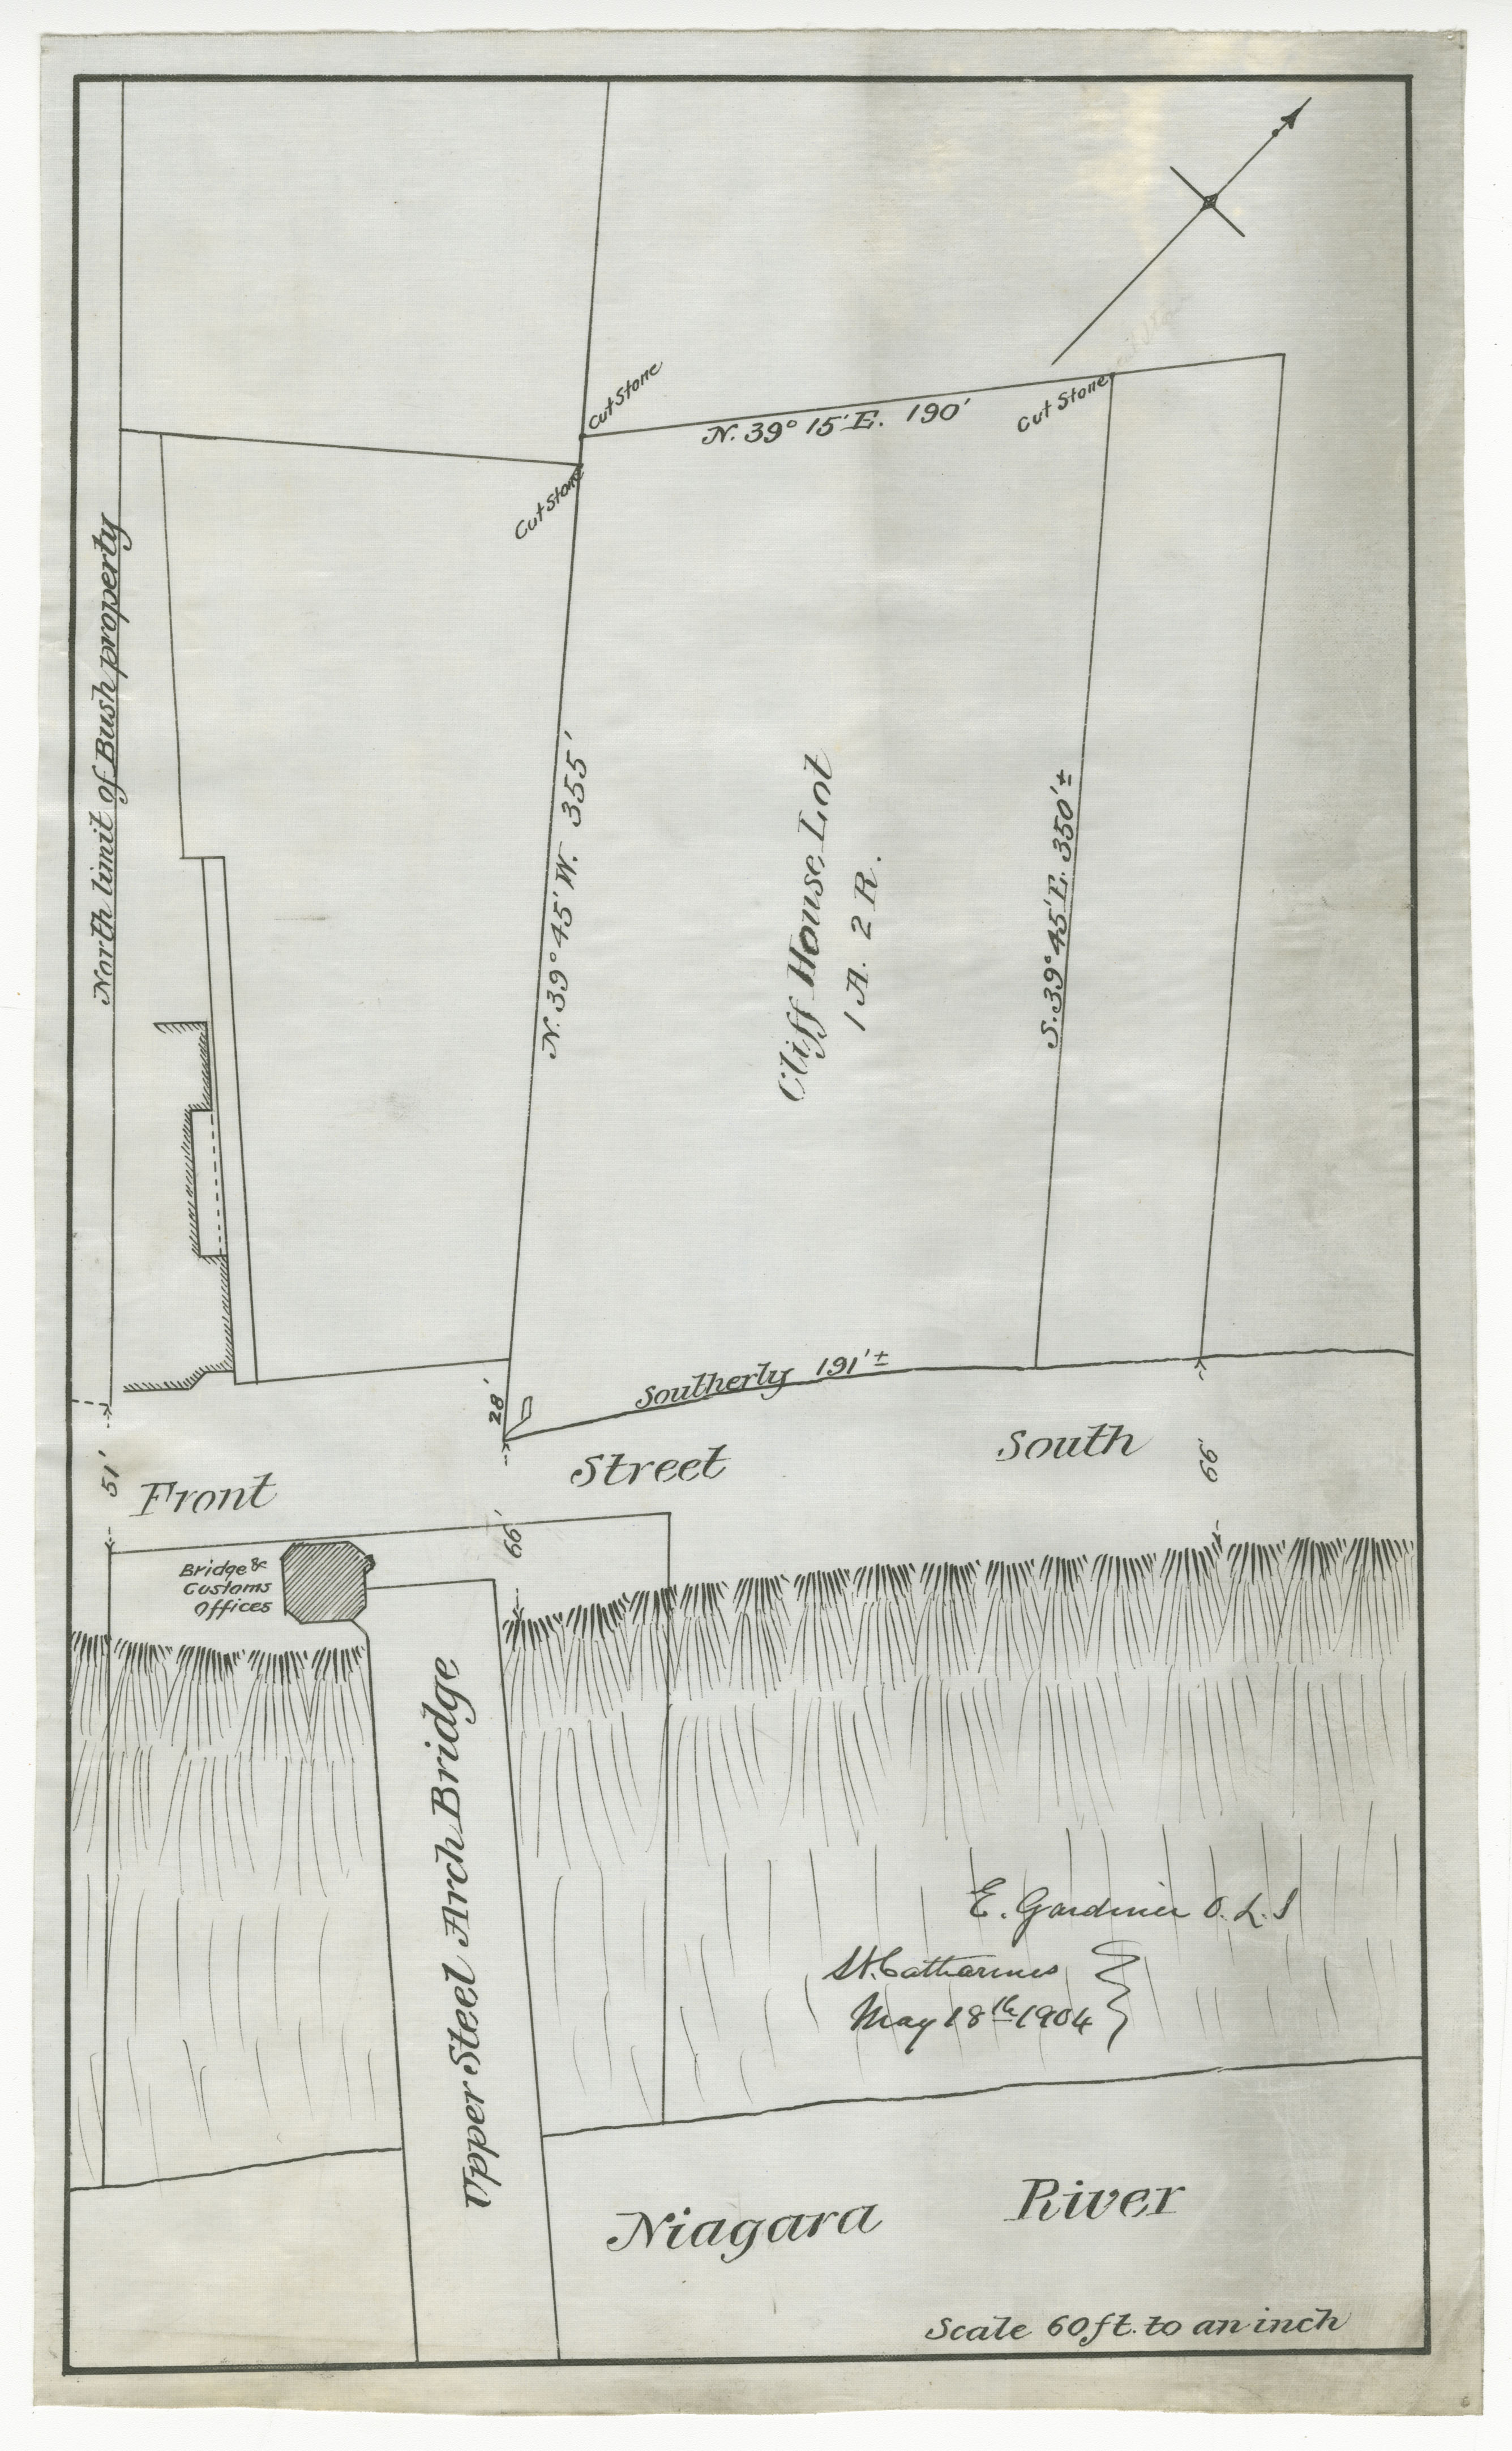 Cut Stone
N. 39° 15' E. 190'
Cut Stone
Cut Stone
North limit of Bush property
N. 39° 45' W. 355'
Cliff House Lot
1 A. 2 R.
S. 39° 45' E. 350' ±
Southerly 191' ±
28'
51'
Front Street South
66'
66'
Bridge &
Customs
Offices
Upper Steel Arch Bridge
E. Gardiner O. L. S
St. Catharines
May 18th 1904
Niagara River
Scale 60 ft. to an inch